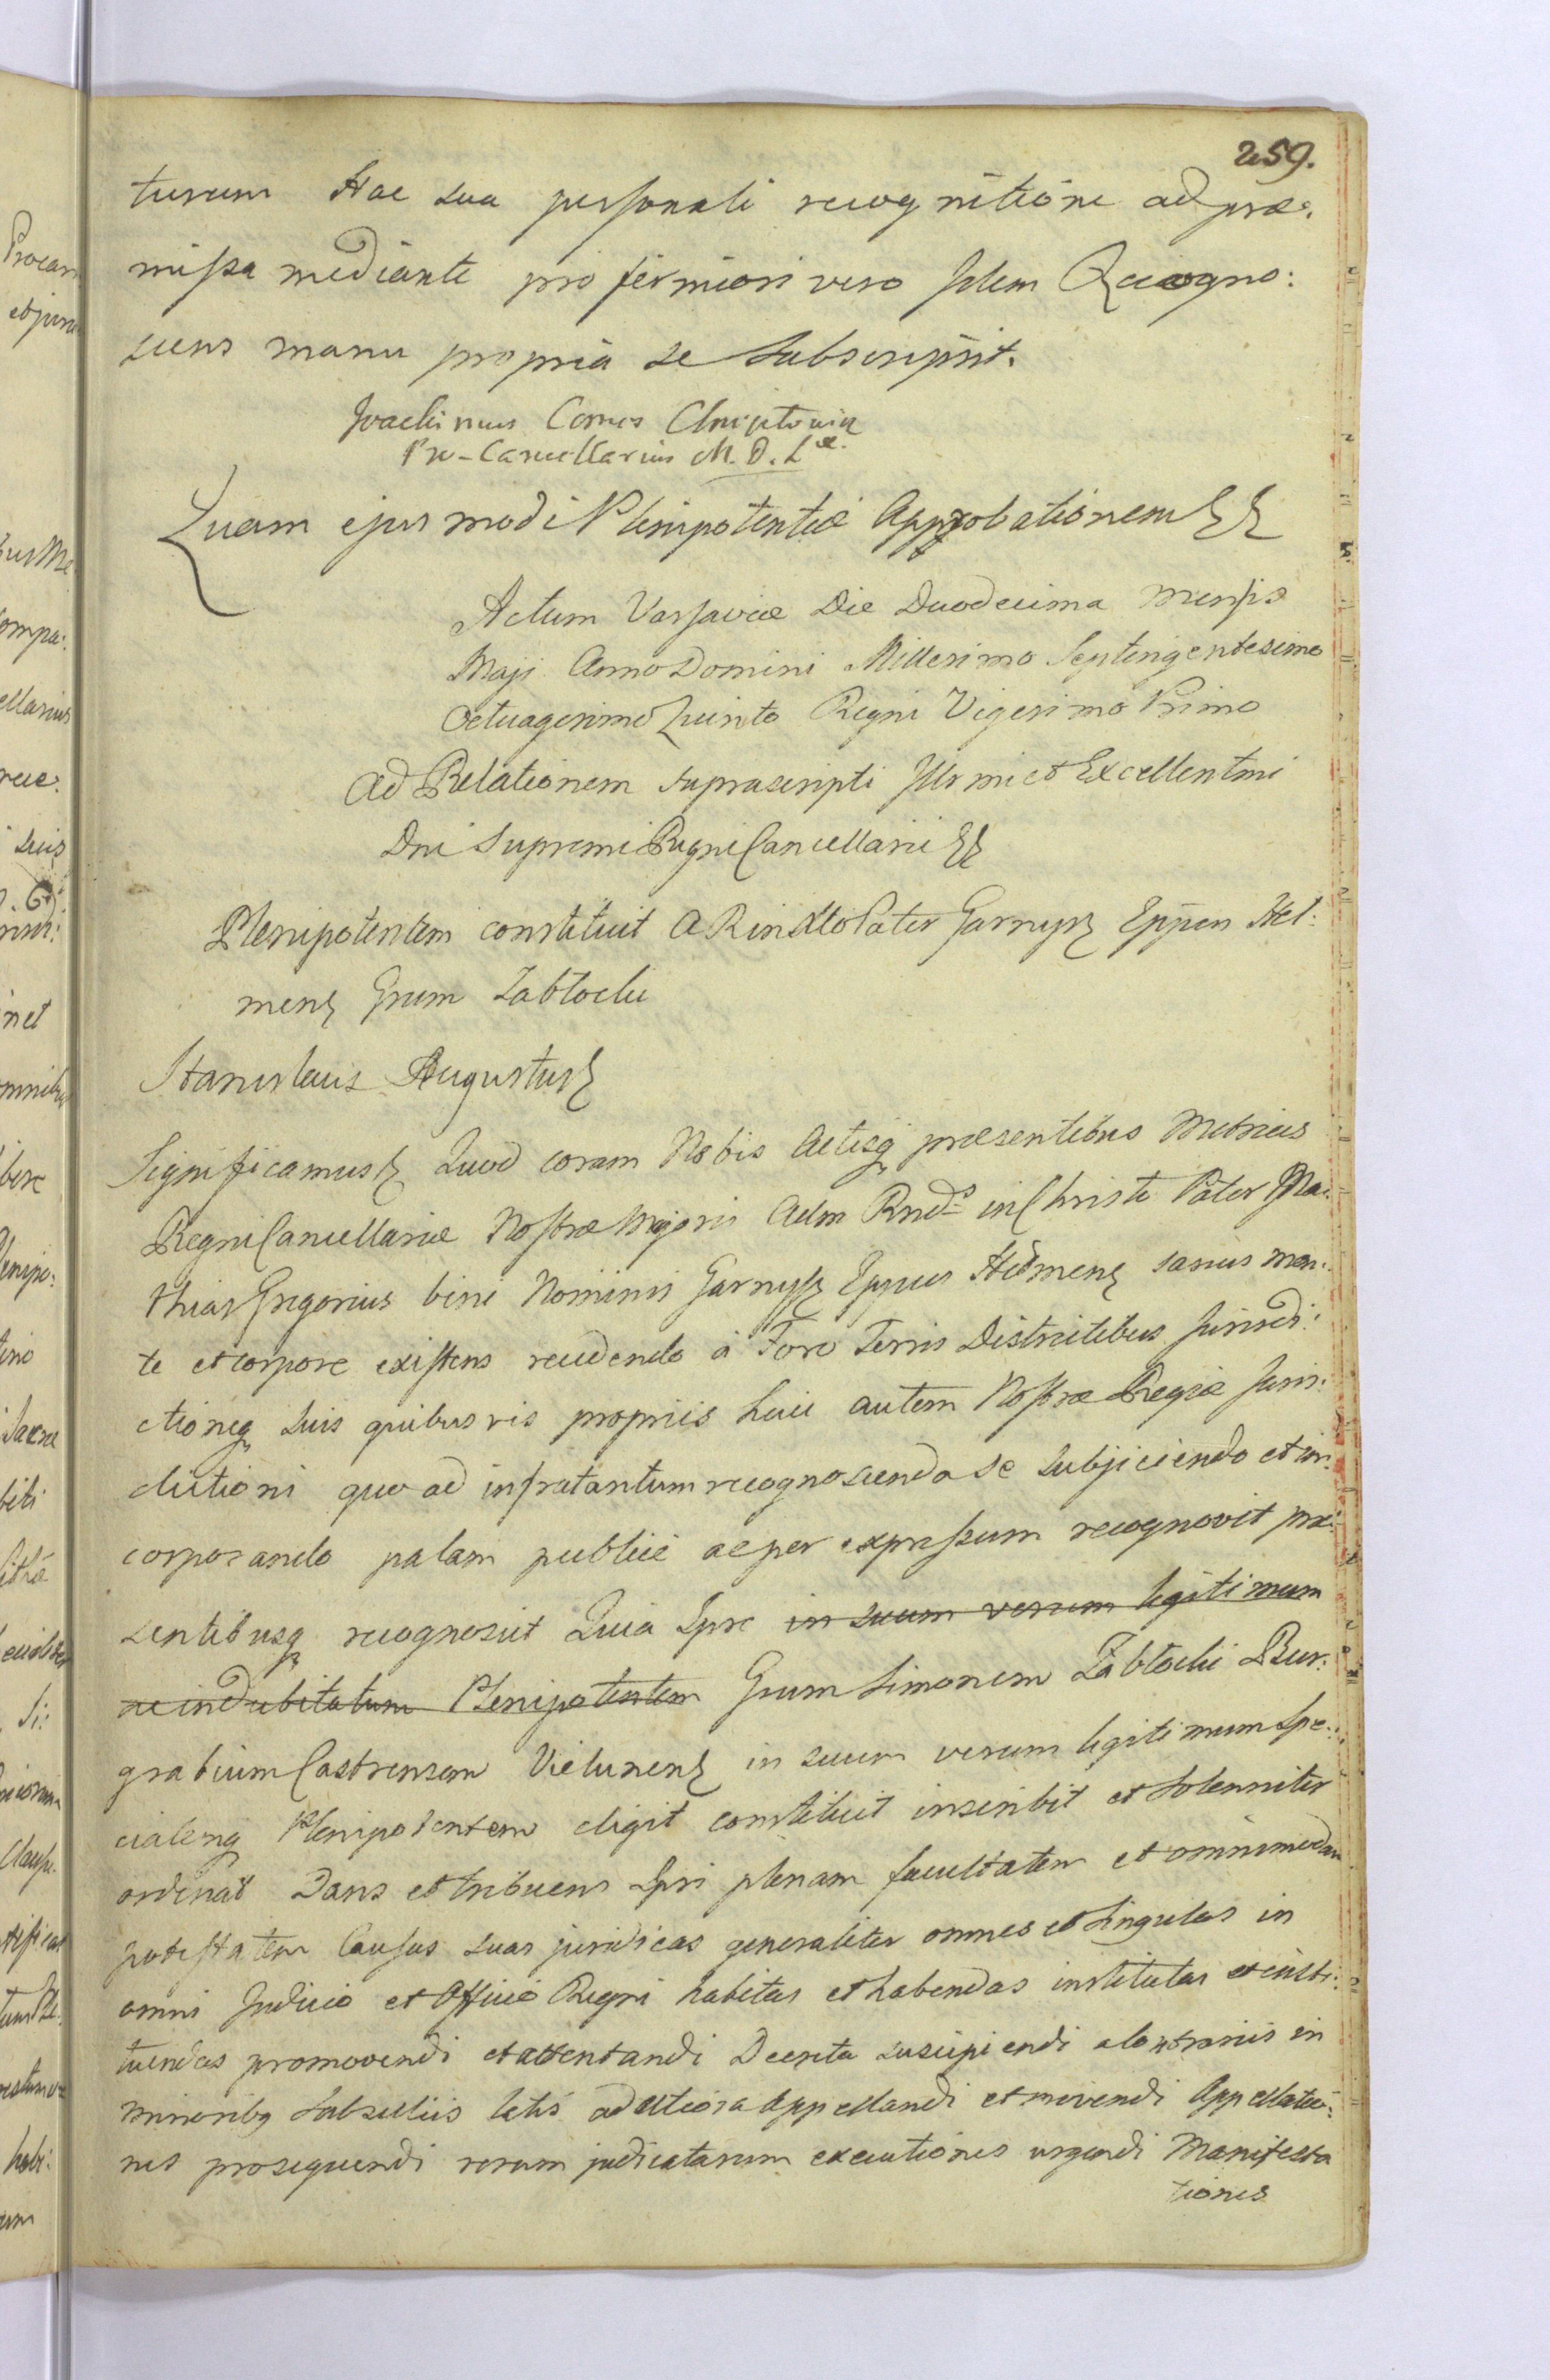 259.
turum Hac sua personali recognitione ad præ:
missa mediante pro firmiori vero Idem Recogno:
scens manu propria se Subscripsit.
Joachimus Comes Chreptowicz
Pro-Cancellarius M. D. L.æ
Quam ejusmodi Plenipotentiæ Approbationem
Actum Varsaviæ Die Duodecima Mensis
Maji Anno Domini Millesimo Septingentesimo
Octuagesimo Quinto Regni Vigesimo Primo
Ad Relationem suprascripti Illrmi et Excellentmi
Dni Supremi Regni Cancellarii
Plenipotentem constituit ARinXto Pater Garnysz Eppen Hel:
menz Grum Zabłocki
Stanislaus Augustus
Significamus Quod coram Nobis Actisq præsentibus Metrices
Regni Cancellariæ Nostræ Majoris Adm Rnds in Christo Pater Ma:
thias Gregorius bini Nominis Garnysz Eppus Helmenz sanus men:
te et corpore existens recedendo à Foro Terris Districtibus Jurisdi:
ctioneq suis quibusvis propriis huic autem Nostræ Regiæ Juris:
dictioni quo ad infratantum recognoscenda se subjiciendo et in:
corporando palam publice ac per expressum recognovit præ:
sentibusq recognoscit Quia Ipse in suum verum legitimum
ac indubitatum Plenipotentem Grum Simonem Zabłocki Bur:
grabium Castrensem Vielunenz in suum verum legitimum Spe:
cialemq Plenipotentem eligit constituit inscribit et Solenniter
ordinat Dans et tribuens Ipsi plenam facultatem et omnimodam
potestatem Causas suas juridicas generaliter omnes et Singulas in
omni Judicio et Officio Regni habitas et habendas institutas et insti:
tuendas promovendi et attentandi Decreta suscipiendi a contrariis in
minoribq Subselliis latis ad altiora appellandi et movendi Appellatio:
nes prosequendi rerum judicatarum executiones urgendi Manifesta
tiones